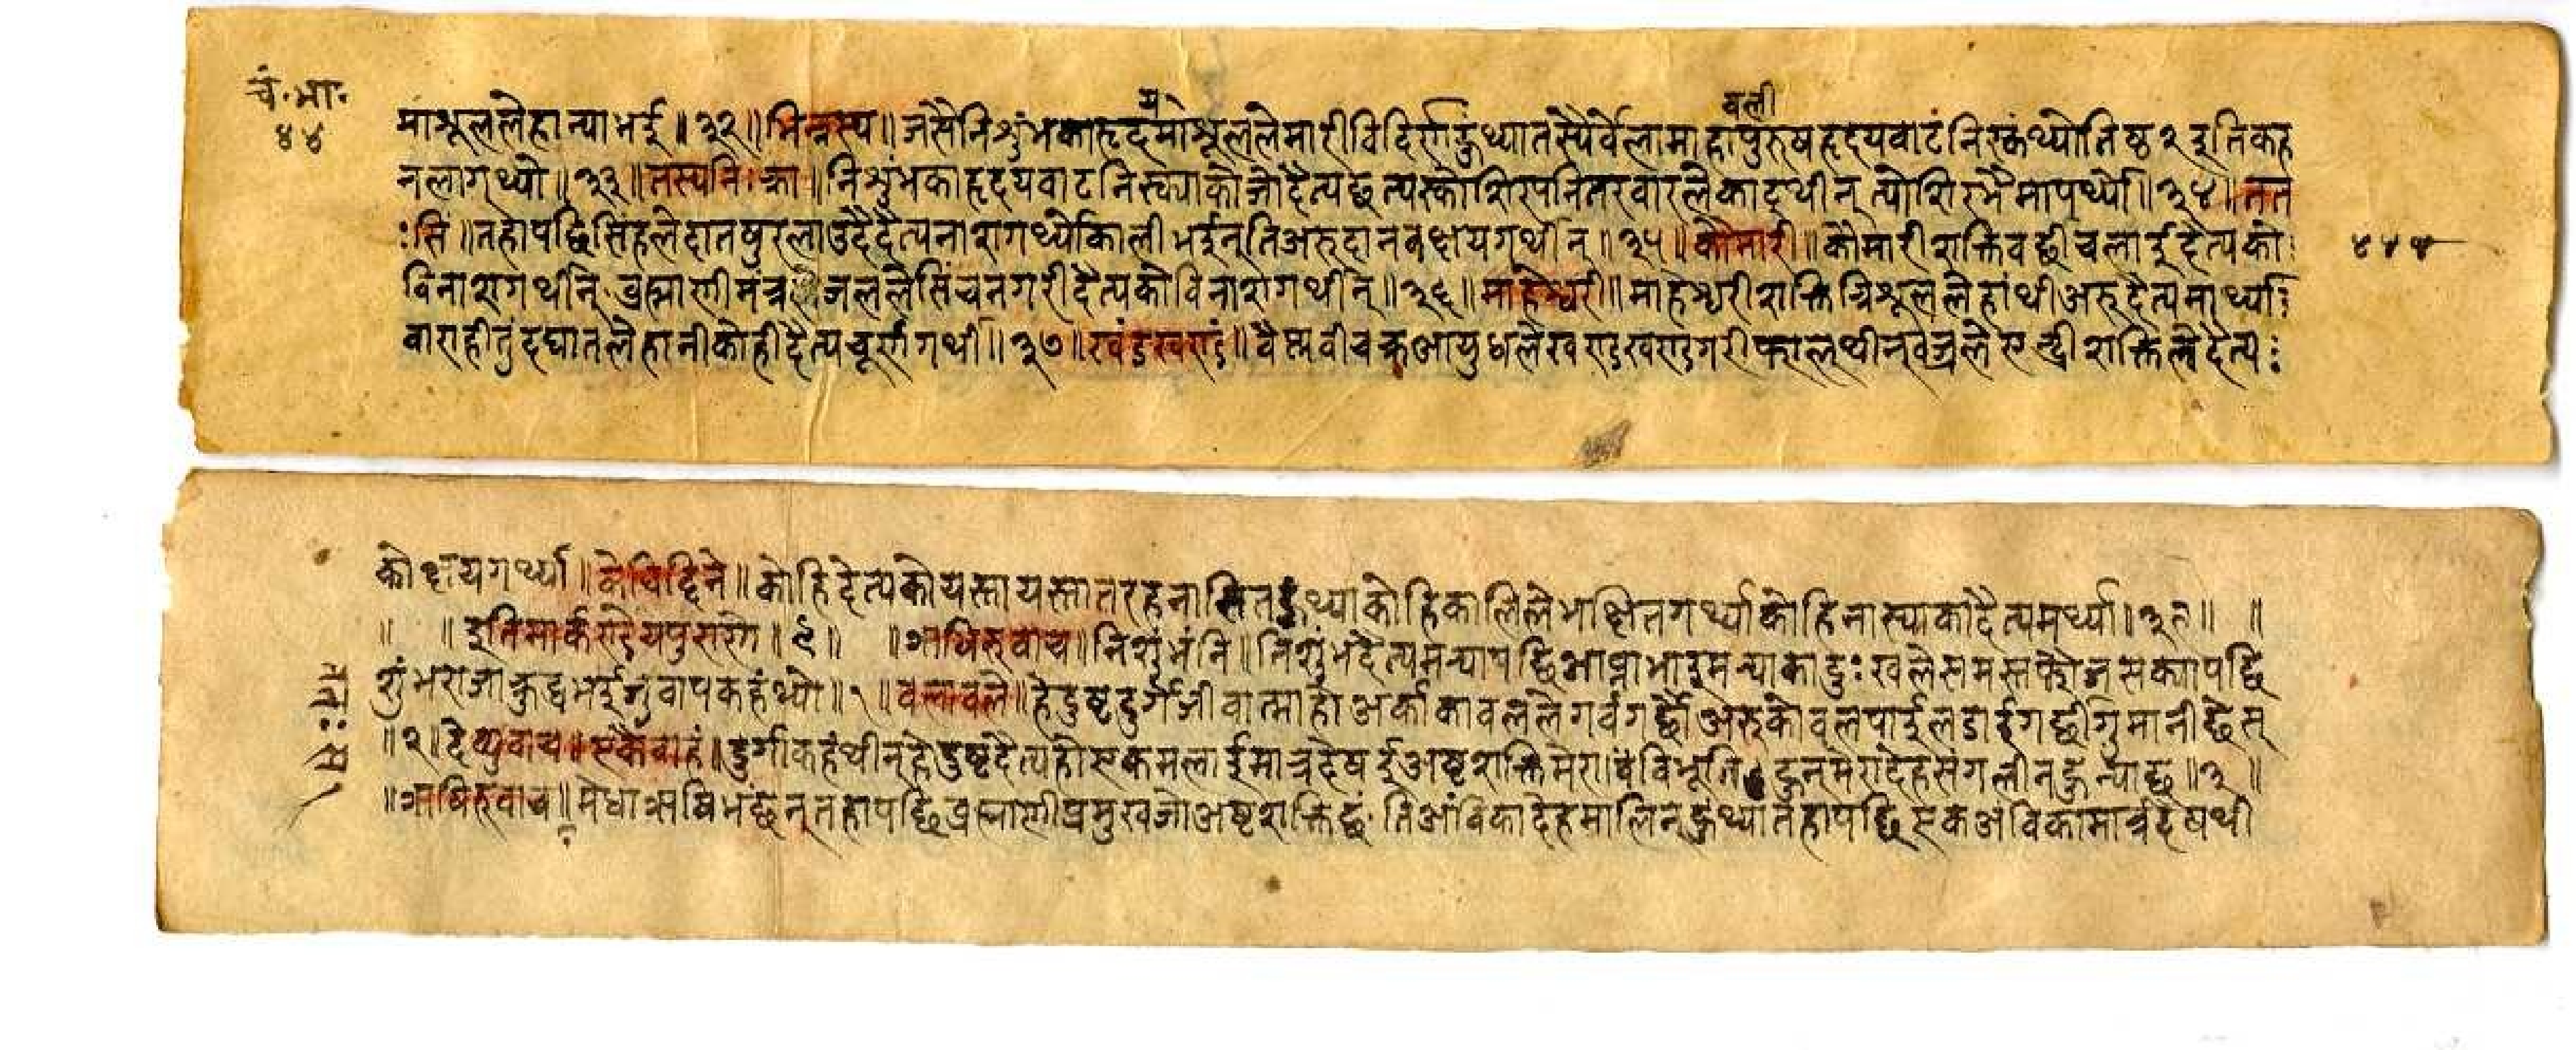 चं॰भा॰
४४
माश्रूललेहान्याभई॥३२॥भिन्नस्य॥जसैनिश्रुंभकाहृदयमाश्रूललेमारीविदिर्णहुंथ्यातस्यैर्वेलामाहावलीपुरुषहृदयवाटंनिस्कंथ्योतिष्ठ२इतिकह
नलागथ्यो॥३३॥तस्यनिःक्रा॥निश्रुंभकाहृदयवाटनिस्क्याकोजोदैत्यछत्यस्कोशिरपनितरवारलेकाट्थीन्त्योशिरभैमापर्थ्यो॥३४॥तत
ःसिं॥तहापछिसिंहलेदातषुरलाउदैदैत्यनाशगर्थ्योकालीभईन्तिअरुदानवक्षयगर्थीन्॥३५॥कौमारी॥कौमारीशक्तिवर्छीचलाईदैत्यको
४४
विनाशगर्थीन्ब्रह्माणीमंत्रलेजललेसिंचनगरीदैत्यकोविनाशगर्थीन्॥३६॥माहेश्वरी॥माहेश्वरीशक्तित्रिश्रूललेहांथीअरुदैत्यमार्थ्यो
वाराहीतुंदघातलेहानीकोहीदैत्यचूर्णगर्थी॥३७॥खंडखण्डं॥वैष्णवीचक्रआयुधलेखण्डखण्डगरीफाल्थीन्वज्रलेएन्द्रीशक्तिलेदैत्यः
कोक्षयगर्थ्या॥केचिद्विने॥कोहिदैत्यकोयस्तायस्तातरहनासितहुंथ्याकोहिकालिलेभक्षितगर्थ्याकोहिनास्याकादैत्यमर्थ्या॥३९॥ ॥
॥ ॥इतिमार्कण्डेयपुराणे॥९॥ ॥ऋषिरुवाच॥निशुंभंनि॥निशुंभदैत्यमर्‍यापछिआफ्नाभाइमर्‍याकादुःखलेसमस्तफौजसक्यापछि
शुंभराजाक्रुद्धभईगुंवापकहंथ्यो॥१॥वलावले॥हेदुष्टदुर्गेजीवात्माहोअर्काकावललेगर्वगर्छौअरुकोवलपाईलडाईगर्छीगुमानीछेस्
॥२॥देव्युवाच॥एकैवाहं॥दुर्गाकहंथीन्हेदुष्टदैत्यहोएकमलाईमात्रदेषईअष्टशक्तिमेराविभूतिहुन्मेरादेहसंगलीनहुन्याछ॥३॥
॥ऋषिरुवाच॥मेधाऋषिभंछन्तहापछिब्रह्माणीप्रमुखजोअष्टशक्तिछंतिआंविकादेहमालिन्हुंथ्यातहापछिएकअंविकामात्रंदेषथी